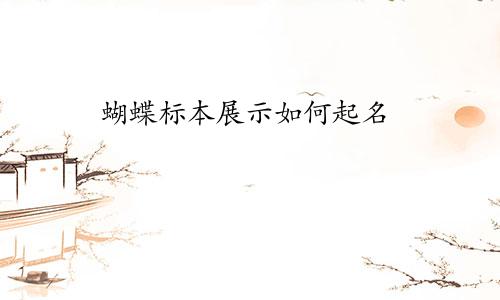 蝴蝶标本展示如何起名